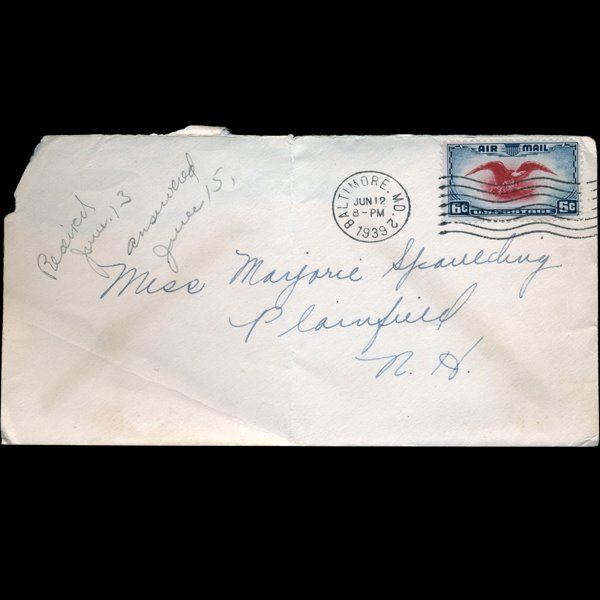 Received
June. 13
answered
June 15.
BALTIMORE, MD. 2
JUN 12
8-PM
1939
AIR MAIL
6¢ U.S. POSTAGE 6¢
Miss Marjorie Spaulding
Plainfield
N. H.